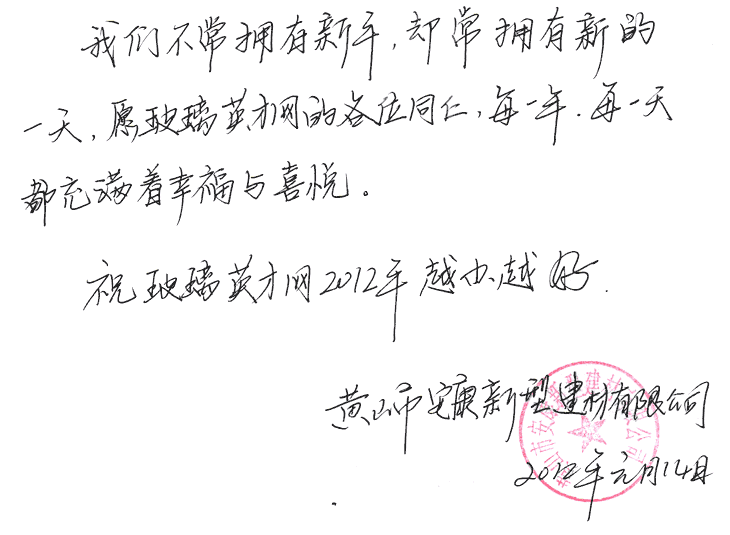 我们不常拥有新年,却常拥有新的
一天,愿玻璃英才网的各位同仁,每一年.每一天
都充满着幸福与喜悦。
祝玻璃英才网2012年越办越好.
黄山市安康新型建材有限公司
2012年元月14日